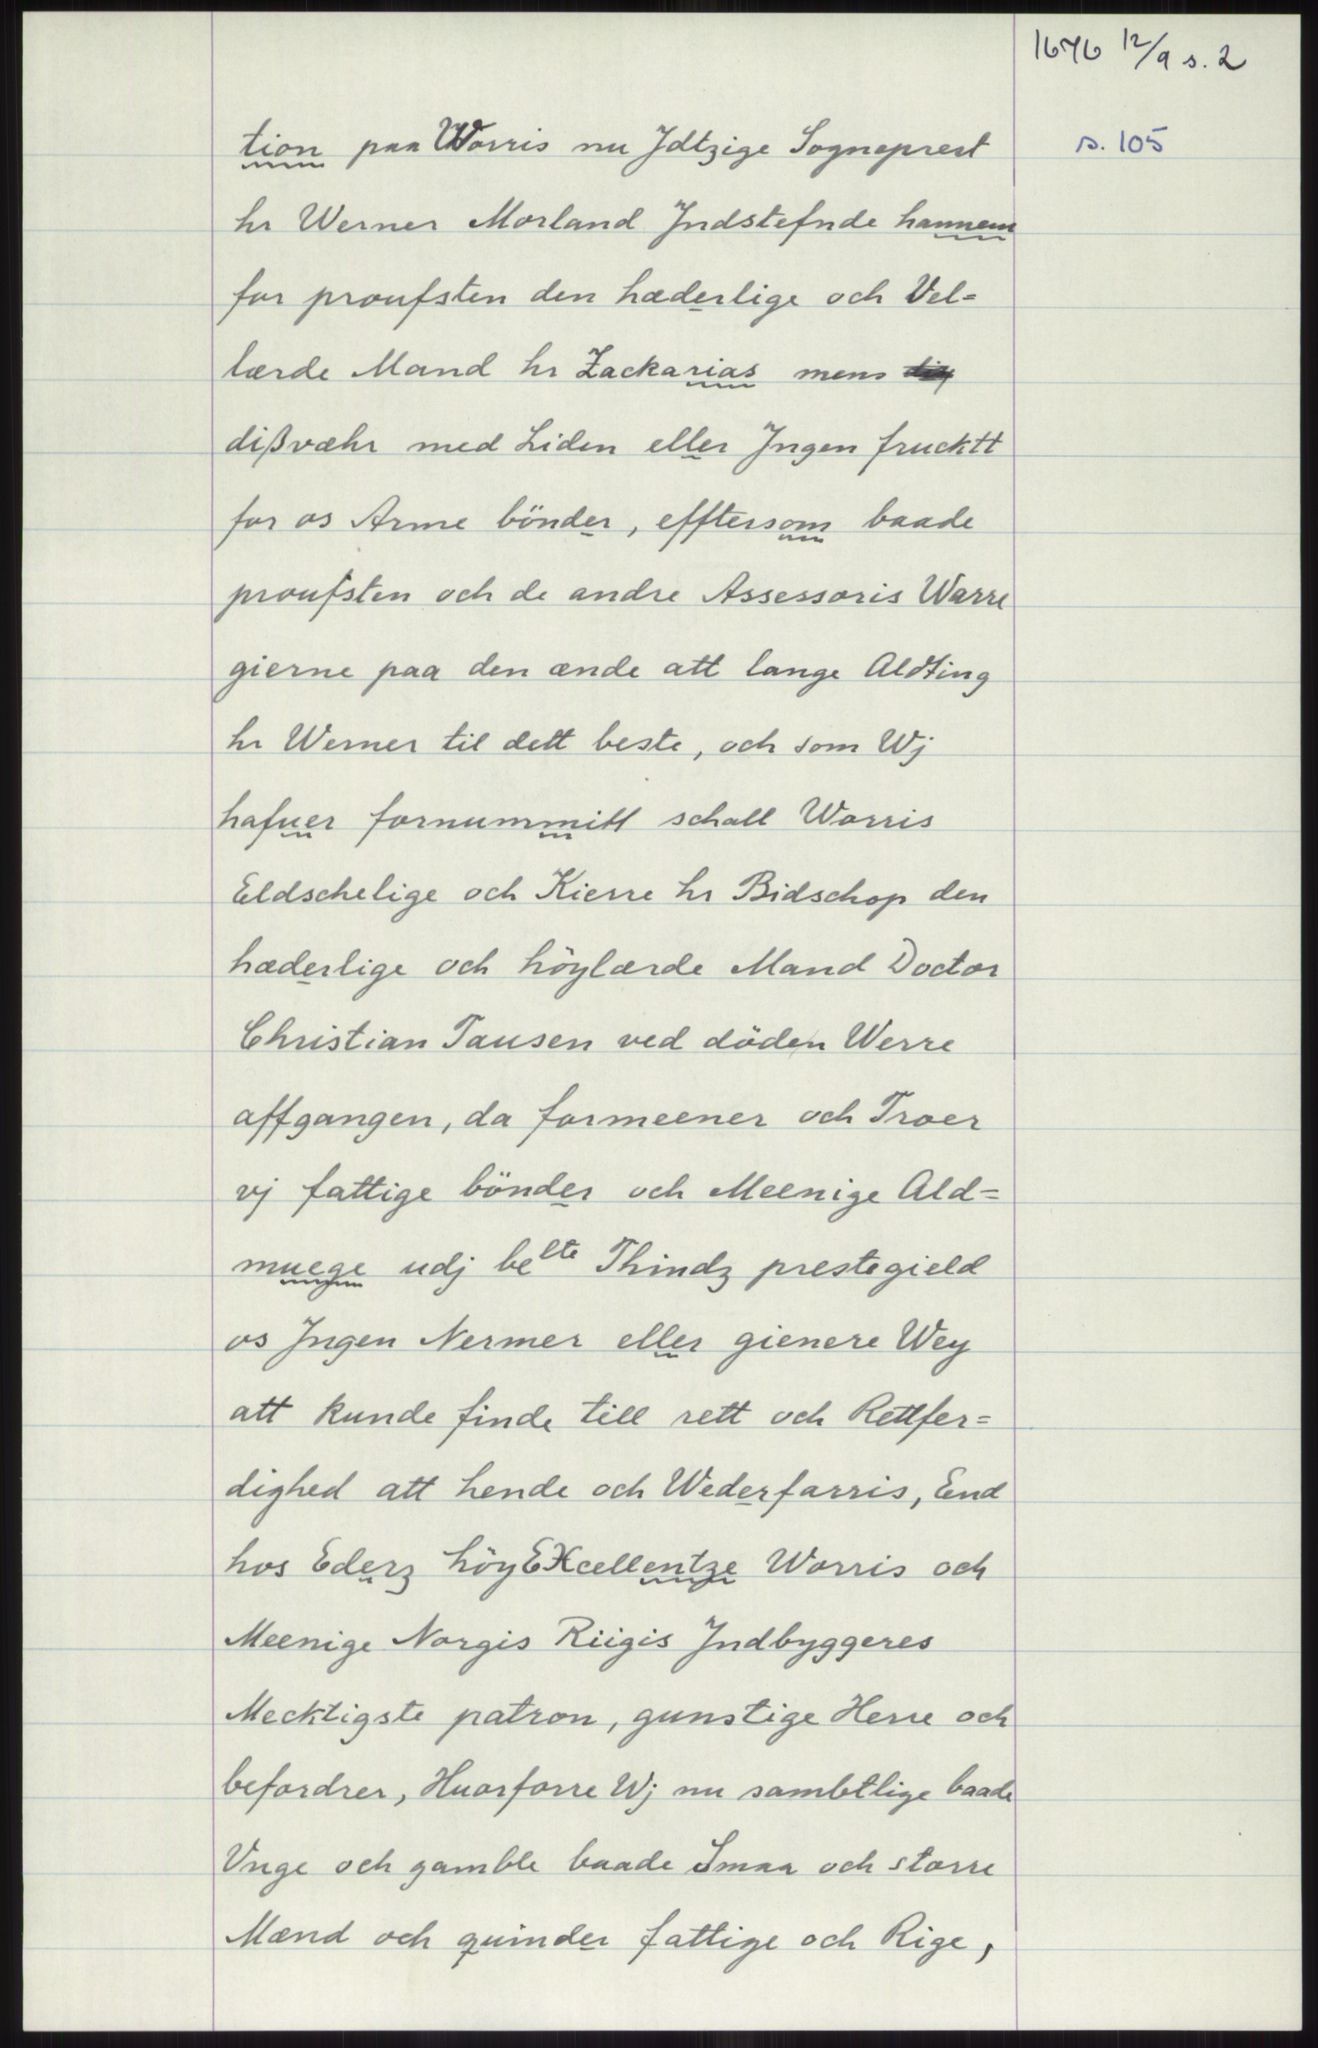 1676 12/9 s. 2
s. 105
tion paa Worris nu Jdtzige Sogneprest
hr Werner Morland Jndstefnde hannem
for proufsten den hæderlige och Vel=
lærde Mand hr Zackarias mens
dißvæhr med Liden eller Jngen frucktt
for os Arme bönder, efftersom baade
proufsten och de andre Assessoris Warre
gierne paa den ænde att lange Aldting
hr Werner til dett beste, och som Wj
hafuer fornummitt schall Worris
Eldschelige och Kierre hr Bidschop den
hæderlige och höylærde Mand Doctor
Christian Tausen ved döden Werre
affgangen, da formeener och Troer
vj fattige bönder och Meenige Ald=
muege udj belte Thindz prestegield
os Jngen Nermer eller gienere Wey
att kunde finde till rett och Rettfer=
dighed att hende och Wederfarris, End
hos Ederz höyEXcellentze Worris och
Meenige Norgis Riigis Jndbyggeres
Mecktigste patron, gunstige Herre och
befordrer, Huorforre Wj nu sambtlige baade
Vnge och gamble baade Smaa och storre
Mænd och quinder fattige och Rige,